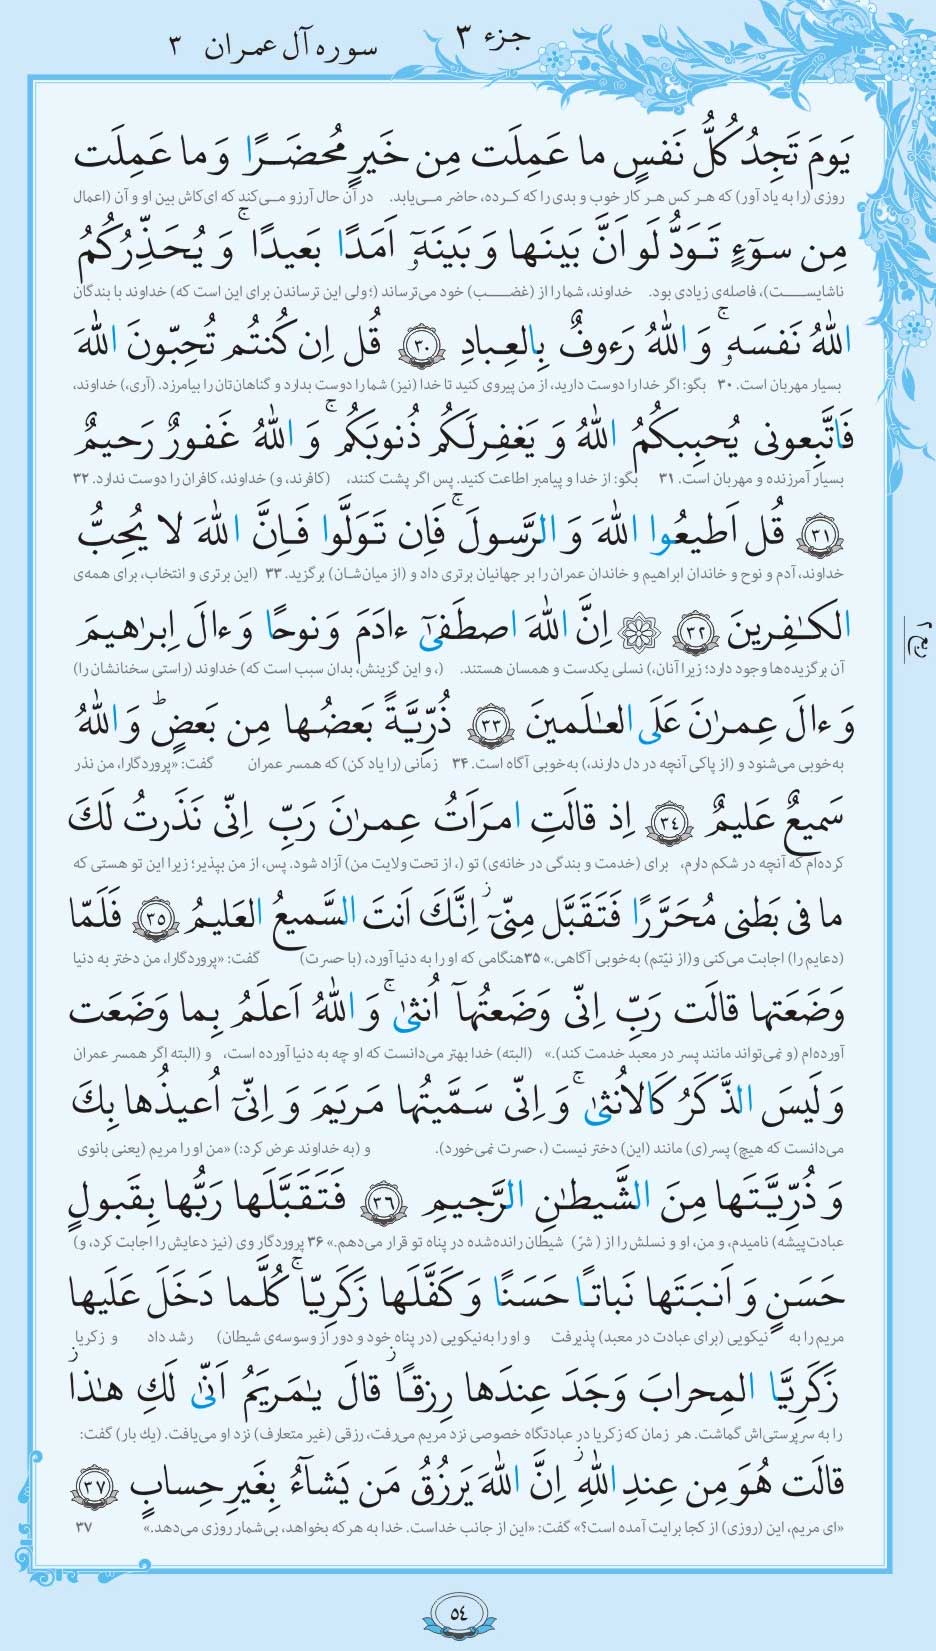 جزء ۳
سوره آل عمران ۳
یَومَ تَجِدُ کُلُّ نَفسٍ ما عَمِلَت مِن خَیرٍ مُحضَـرًا وَ ما عَمِلَت
روزی (را به یاد آور) که هر کس هر کار خوب و بدی را که کرده، حاضر می‌یابد. در آن حال آرزو می‌کند که ای کاش بین او و آن (اعمال
مِن سوٓءٍ تَوَدُّ لَو اَنَّ بَینَـها وَ بَینَهٓۥ اَمَدًا بَعیدًا ۗ وَ یُحَذِّرُکُمُ
ناشایست)، فاصله‌ی زیادی بود. خداوند، شما را از (غضب) خود می‌ترساند (؛ ولی این ترساندن برای این است که) خداوند با بندگان
اللّٰهُ نَفسَهۥ ۗ وَ اللّٰهُ رَءوفٌ بِالعِبادِ ﴿۳۰﴾ قُل اِن کُنتُم تُحِبّونَ اللّٰهَ
بسیار مهربان است. ۳۰ بگو: اگر خدا را دوست دارید، از من پیروی کنید تا خدا (نیز) شما را دوست بدارد و گناهان‌تان را بیامرزد. (آری،) خداوند،
فَاتَّبِعونی یُحبِبکُمُ اللّٰهُ وَ یَغفِرلَکُم ذُنوبَکُم ۚ وَ اللّٰهُ غَفورٌ رَحیمٌ
بسیار آمرزنده و مهربان است. ۳۱ بگو: از خدا و پیامبر اطاعت کنید. پس اگر پشت کنند، (کافرند، و) خداوند، کافران را دوست ندارد. ۳۲
﴿۳۱﴾ قُل اَطیعُوا اللّٰهَ وَ الرَّسولَ ۚ فَاِن تَوَلَّوا فَاِنَّ اللّٰهَ لا یُحِبُّ
خداوند، آدم و نوح و خاندان ابراهیم و خاندان عمران را بر جهانیان برتری داد و (از میان‌شان) برگزید. ۳۳ (این برتری و انتخاب، برای همه‌ی
الکٰفِرینَ ﴿۳۲﴾ اِنَّ اللّٰهَ اصطَفیٰٓ ءادَمَ وَ نوحًا وَ ءالَ اِبرٰهیمَ
آن برگزیده‌ها وجود دارد؛ زیرا آنان،) نسلی یکدست و همسان هستند. (، و این گزینش، بدان سبب است که) خداوند (راستی سخنانشان را)
ربع ۲
وَ ءالَ عِمرٰنَ عَلَی العٰلَمینَ ﴿۳۳﴾ ذُرِّیَّةً بَعضُـها مِن بَعضٍ ۗ وَ اللّٰهُ
به‌خوبی می‌شنود و (از پاکی آنچه در دل دارند،) به‌خوبی آگاه است. ۳۴ زمانی (را یاد کن) که همسر عمران گفت: «پروردگارا، من نذر
سَمیعٌ عَلیمٌ ﴿۳۴﴾ اِذ قالَتِ امرَاَتُ عِمرٰنَ رَبِّ اِنّی نَذَرتُ لَکَ
کرده‌ام که آنچه در شکم دارم، برای (خدمت و بندگی در خانه‌ی) تو (، از تحت ولایت من) آزاد شود. پس، از من بپذیر؛ زیرا این تو هستی که
ما فی بَطنی مُحَرَّرًا فَتَقَبَّل مِنّیٓ ۖ اِنَّکَ اَنتَ السَّمیعُ العَلیمُ ﴿۳۵﴾ فَلَمّا
(دعایم را) اجابت می‌کنی و (از نیّتم) به‌خوبی آگاهی.» ۳۵ هنگامی که او را به دنیا آورد، (با حسرت) گفت: «پروردگارا، من دختر به دنیا
وَضَعَتها قالَت رَبِّ اِنّی وَضَعتُهآ اُنثیٰ ۗ وَ اللّٰهُ اَعلَمُ بِما وَضَعَت
آورده‌ام (و نمی‌تواند مانند پسر در معبد خدمت کند).» (البته) خدا بهتر می‌دانست که او چه به دنیا آورده است، و (البته اگر همسر عمران
وَ لَیسَ الذَّکَرُ کَالاُنثیٰ ۚ وَ اِنّی سَمَّیتُها مَریَمَ وَ اِنّیٓ اُعیذُها بِکَ
می‌دانست که هیچ) پسر(ی) مانند (این) دختر نیست (، حسرت نمی‌خورد). و (به خداوند عرض کرد:) «من او را مریم (یعنی بانوی
وَ ذُرِّیَّتَها مِنَ الشَّیطٰنِ الرَّجیمِ ﴿۳۶﴾ فَتَقَبَّلَها رَبُّها بِقَبولٍ
عبادت‌پیشه) نامیدم، و من، او و نسلش را از (شرّ) شیطان رانده‌شده در پناه تو قرار می‌دهم.» ۳۶ پروردگار وی (نیز دعایش را اجابت کرد، و)
حَسَنٍ وَ اَنبَتَها نَباتًا حَسَنًا وَ کَفَّلَها زَکَریّا ۖ کُلَّما دَخَلَ عَلَیها
مریم را به نیکویی (برای عبادت در معبد) پذیرفت و او را به نیکویی (در پناه خود و دور از وسوسه‌ی شیطان) رشد داد و زکریا
زَکَریَّا المِحرابَ وَجَدَ عِندَها رِزقًا ۖ قالَ یٰمَریَمُ اَنّیٰ لَکِ هٰذا ۖ
را به سرپرستی‌اش گماشت. هر زمان که زکریا در عبادتگاه خصوصی نزد مریم می‌رفت، رزقی (غیر متعارف) نزد او می‌یافت. (یك بار) گفت:
قالَت هُوَ مِن عِندِ اللّٰهِ ۖ اِنَّ اللّٰهَ یَرزُقُ مَن یَشآءُ بِغَیرِ حِسابٍ ﴿۳۷﴾
«ای مریم، این (روزی) از کجا برایت آمده است؟» گفت: «این از جانب خداست. خدا به هرکه بخواهد، بی‌شمار روزی می‌دهد.» ۳۷
۵۴